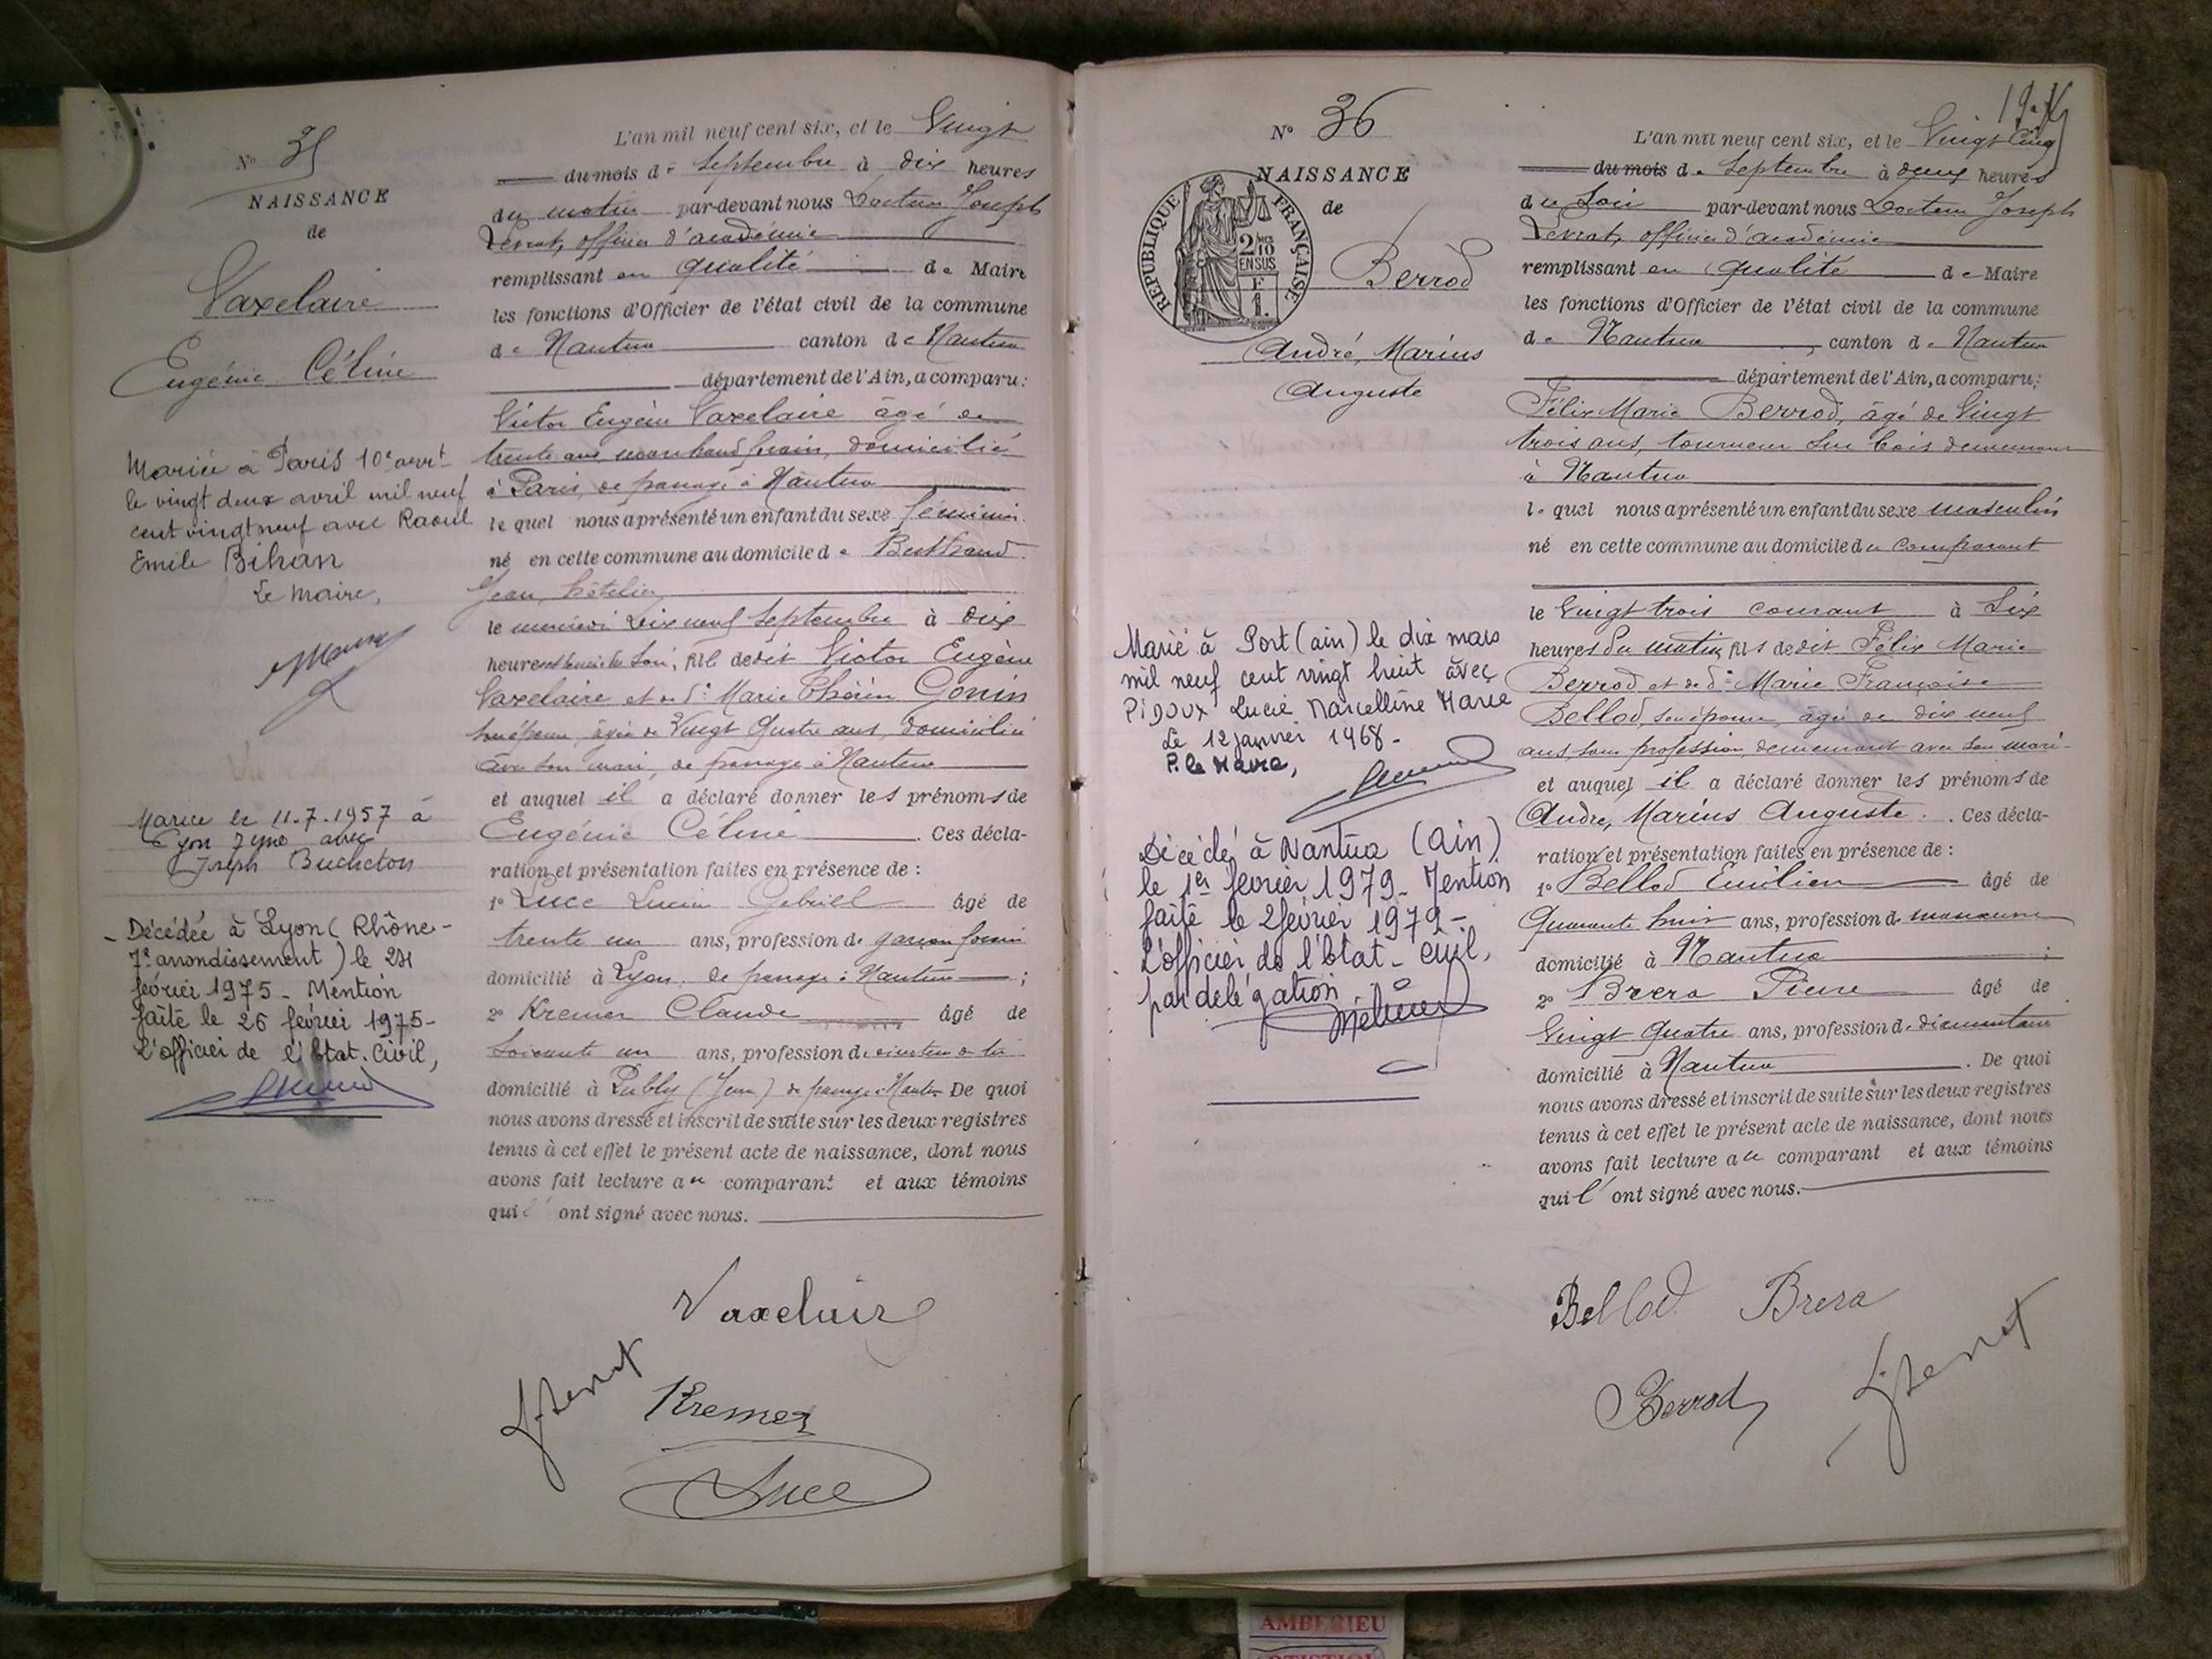 N° 35
NAISSANCE
de
Vaxelaire
Eugénie Céline
Mariée à Paris 10e arrt
le vingt deux avril mil neuf
cent vingt neuf avec Raoul
Emile Bihan
Le Maire,
Mariée le 11.7.1957 à
Lyon 7ème avec
Joseph
- Décédée à Lyon (Rhône-
7e arrondissement) le 24
février 1975 - Mention
faite le 26 février 1975-
L'officier de l'Etat. civil,
L'an mil neuf cent six, et le Vingt
du mois de Septembre à dix heures
du matin par-devant nous Docteur Joseph
Levrat, officier d'académie
remplissant en qualité de Maire
les fonctions d'Officier de l'état civil de la commune
de Nantua canton de Nantua
département de l'Ain, a comparu:
Victor Eugène Vaxelaire âgé de
trente ans, marchand forain, domicilié
à Paris, de passage à Nantua
le quel nous a présenté un enfant du sexe féminin
né en cette commune au domicile de Berthand
Jean, hôtelier
le mercredi dix neuf Septembre à dix
heures et demie du soir, fille de dit Victor Eugène
Vaxelaire et de de Marie Gonin
son épouse, âgée de Vingt quatre ans, domiciliée
avec son mari, de passage à Nantua
et auquel il a déclaré donner les prénoms de
Eugénie Céline . Ces décla-
ration et présentation faites en présence de :
1° Luce Lucien Gabriel âgé de
trente un ans, profession de garçon forain
domicilié à Lyon, de passage à Nantua ;
2° Kremer Claude âgé de
soixante un ans, profession de directeur de tir
domicilié à Publy (Jura) de passage à Nantua De quoi
nous avons dressé et inscrit de suite sur les deux registres
tenus à cet effet le présent acte de naissance, dont nous
avons fait lecture au comparant et aux témoins
qui l' ont signé avec nous.
Vaxelaire
Kremer
Luce
N° 36
NAISSANCE
de
RÉPUBLIQUE FRANÇAISE
2/10
EN SUS
F
1.
Berrod
André, Marius
Auguste
Marié à Port (ain) le dix mars
mil neuf cent vingt huit avec
PIDOUX Lucie Marcelline Marie
Le 12 janvier 1968-
P. le Maire,
Décédé à Nantua (Ain)
le 1er février 1979_ Mention
faite le 2 février 1979-
L'officier de l'Etat-civil,
par délégation
L'an mil neuf cent six, et le Vingt Cinq
du mois de Septembre à deux heures
du Soir par-devant nous Docteur Joseph
Levrat, officier d'académie
remplissant en qualité de Maire
les fonctions d'Officier de l'état civil de la commune
de Nantua, canton de Nantua
département de l'Ain, a comparu:
Félix Marie Berrod, âgé de Vingt
trois ans, tourneur sur bois demeurant
à Nantua
le quel nous a présenté un enfant du sexe masculin
né en cette commune au domicile du comparant
le Vingt trois courant à Six
heures du matin, fils de dit Félix Marie
Berrod et de de Marie Françoise
Bellod, son épouse, âgée de dix neuf
ans, sans profession, demeurant avec son mari-
et auquel il a déclaré donner les prénoms de
André, Marius Auguste . Ces décla-
ration et présentation faites en présence de :
1° Bellod Emilien âgé de
Quarante huit ans, profession de manœuvre
domicilié à Nantua ;
2° Brera Pierre âgé de
Vingt Quatre ans, profession de diamantaire
domicilié à Nantua . De quoi
nous avons dressé et inscrit de suite sur les deux registres
tenus à cet effet le présent acte de naissance, dont nous
avons fait lecture au comparant et aux témoins
qui l' ont signé avec nous.
Bellod Brera
Berrod
AMBERIEU